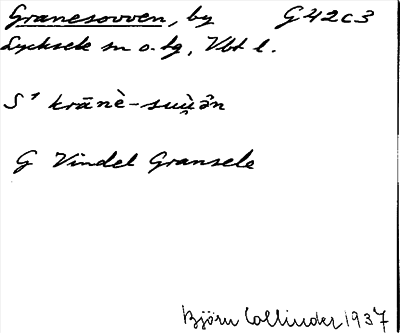 Granesovven, by G42c3
Lycksele sn o. tg, Vbt l.
S¹ krānè-suù̯ə̑n
G Vindel Gransele
Björn Collinder 1937